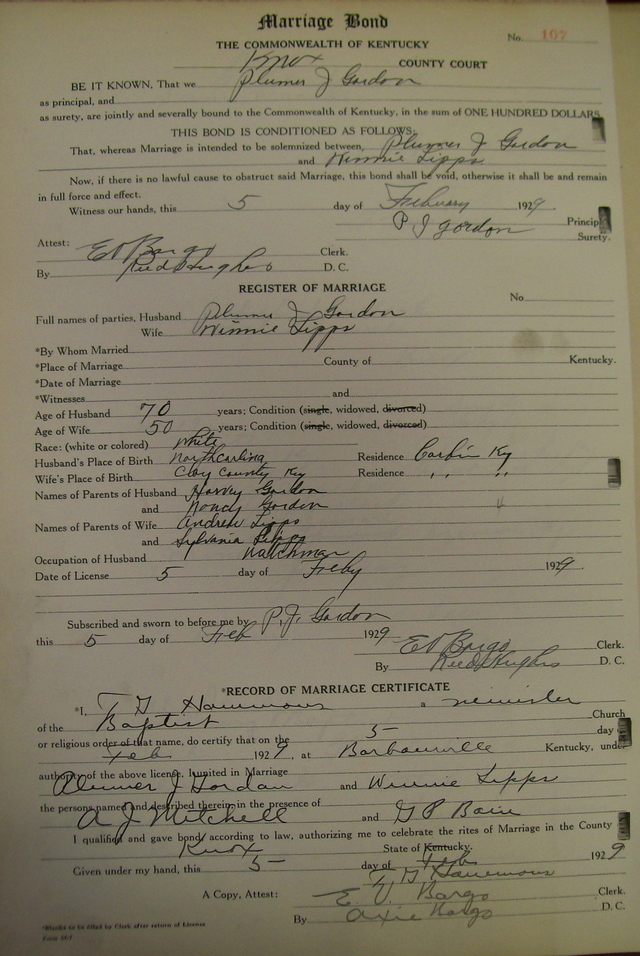 Marriage Bond
THE COMMONWEALTH OF KENTUCKY No. 107
Knox COUNTY COURT
BE IT KNOWN, That we Plumer J Gordon
as principal, and
as surety, are jointly and severally bound to the Commonwealth of Kentucky, in the sum of ONE HUNDRED DOLLARS
THIS BOND IS CONDITIONED AS FOLLOWS:
That, whereas Marriage is intended to be solemnized between, Plumer J Gordon
and Winnie Lipps
Now, if there is no lawful cause to obstruct said Marriage, this bond shall be void, otherwise it shall be and remain
in full force and effect.
Witness our hands, this 5 day of February 1929
P J Gordon Princip
Surety.
Attest: Ed Bargo Clerk.
By Reed Hughes D. C.
REGISTER OF MARRIAGE
No.
Full names of parties, Husband Plumer J Gordon
Wife Winnie Lipps
*By Whom Married
*Place of Marriage County of Kentucky.
*Date of Marriage
*Witnesses and
Age of Husband 70 years; Condition (single, widowed, divorced)
Age of Wife 50 years; Condition (single, widowed, divorced)
Race: (white or colored) White
Husband's Place of Birth North Carlina Residence Corbin Ky
Wife's Place of Birth Clay County Ky Residence " "
Names of Parents of Husband Harvey Gordon
and Nancy Gordon
Names of Parents of Wife Andrew Lipps
and Sylvania Lipps
Occupation of Husband Watchman
Date of License 5 day of Feby 1929.
Subscribed and sworn to before me by P. J. Gordon
this 5 day of Feb 1929 Ed Bargo Clerk.
By Reed Hughes D. C.
*RECORD OF MARRIAGE CERTIFICATE
*I, T G Hammons a minister
of the Baptist Church
or religious order of that name, do certify that on the 5 day
Feb 1929, at Barbourville Kentucky, unde
authority of the above license, I united in Marriage
Plumer J Gordan and Winnie Lipps
the persons named and described therein in the presence of
A J Mitchell and G P Bain
I qualified and gave bond according to law, authorizing me to celebrate the rites of Marriage in the County
Knox State of Kentucky.
Given under my hand, this 5 day of Feb 1929
T G Hammons
A Copy, Attest: E. D. Bargo Clerk.
By Arxie Bargo D. C.
*Blanks to be filled by Clerk after return of License